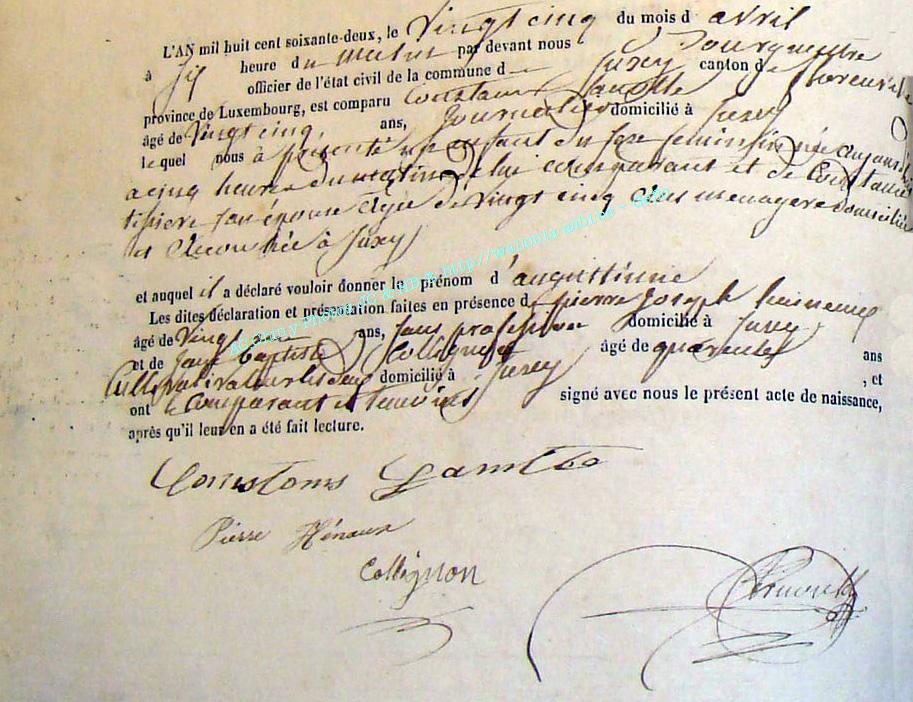 L'AN mil huit cent soixante-deux, le vingt cinq du mois d avril
à six heure du matin par devant nous Bourgmestre
officier de l'état civil de la commune d Juzey canton d
province de Luxembourg, est comparu Constant Lamotte
âgé de vingt cinq ans, Journalier domicilié à Juzey
lequel nous à présenté un enfant du sexe féminin née aujourd
a cinq heures du matin de lui comparant et de Constance
son épouse agée de vingt cinq ans menagere domiciliée
et accouchée à Juzey
et auquel il a déclaré vouloir donner le prénom d'augustinne
Les dites déclaration et présentation faites en présence d pierre Joseph
âgé de vingt ans, sans profession domicilié à Juzey
et de Jean baptiste Collignon âgé de quarente ans
Cultivateur domicilié à Juzey, et
ont le comparant et temoins signé avec nous le présent acte de naissance,
après qu'il leur en a été fait lecture.
Lamotte
Pierre Hénaux
Collignon